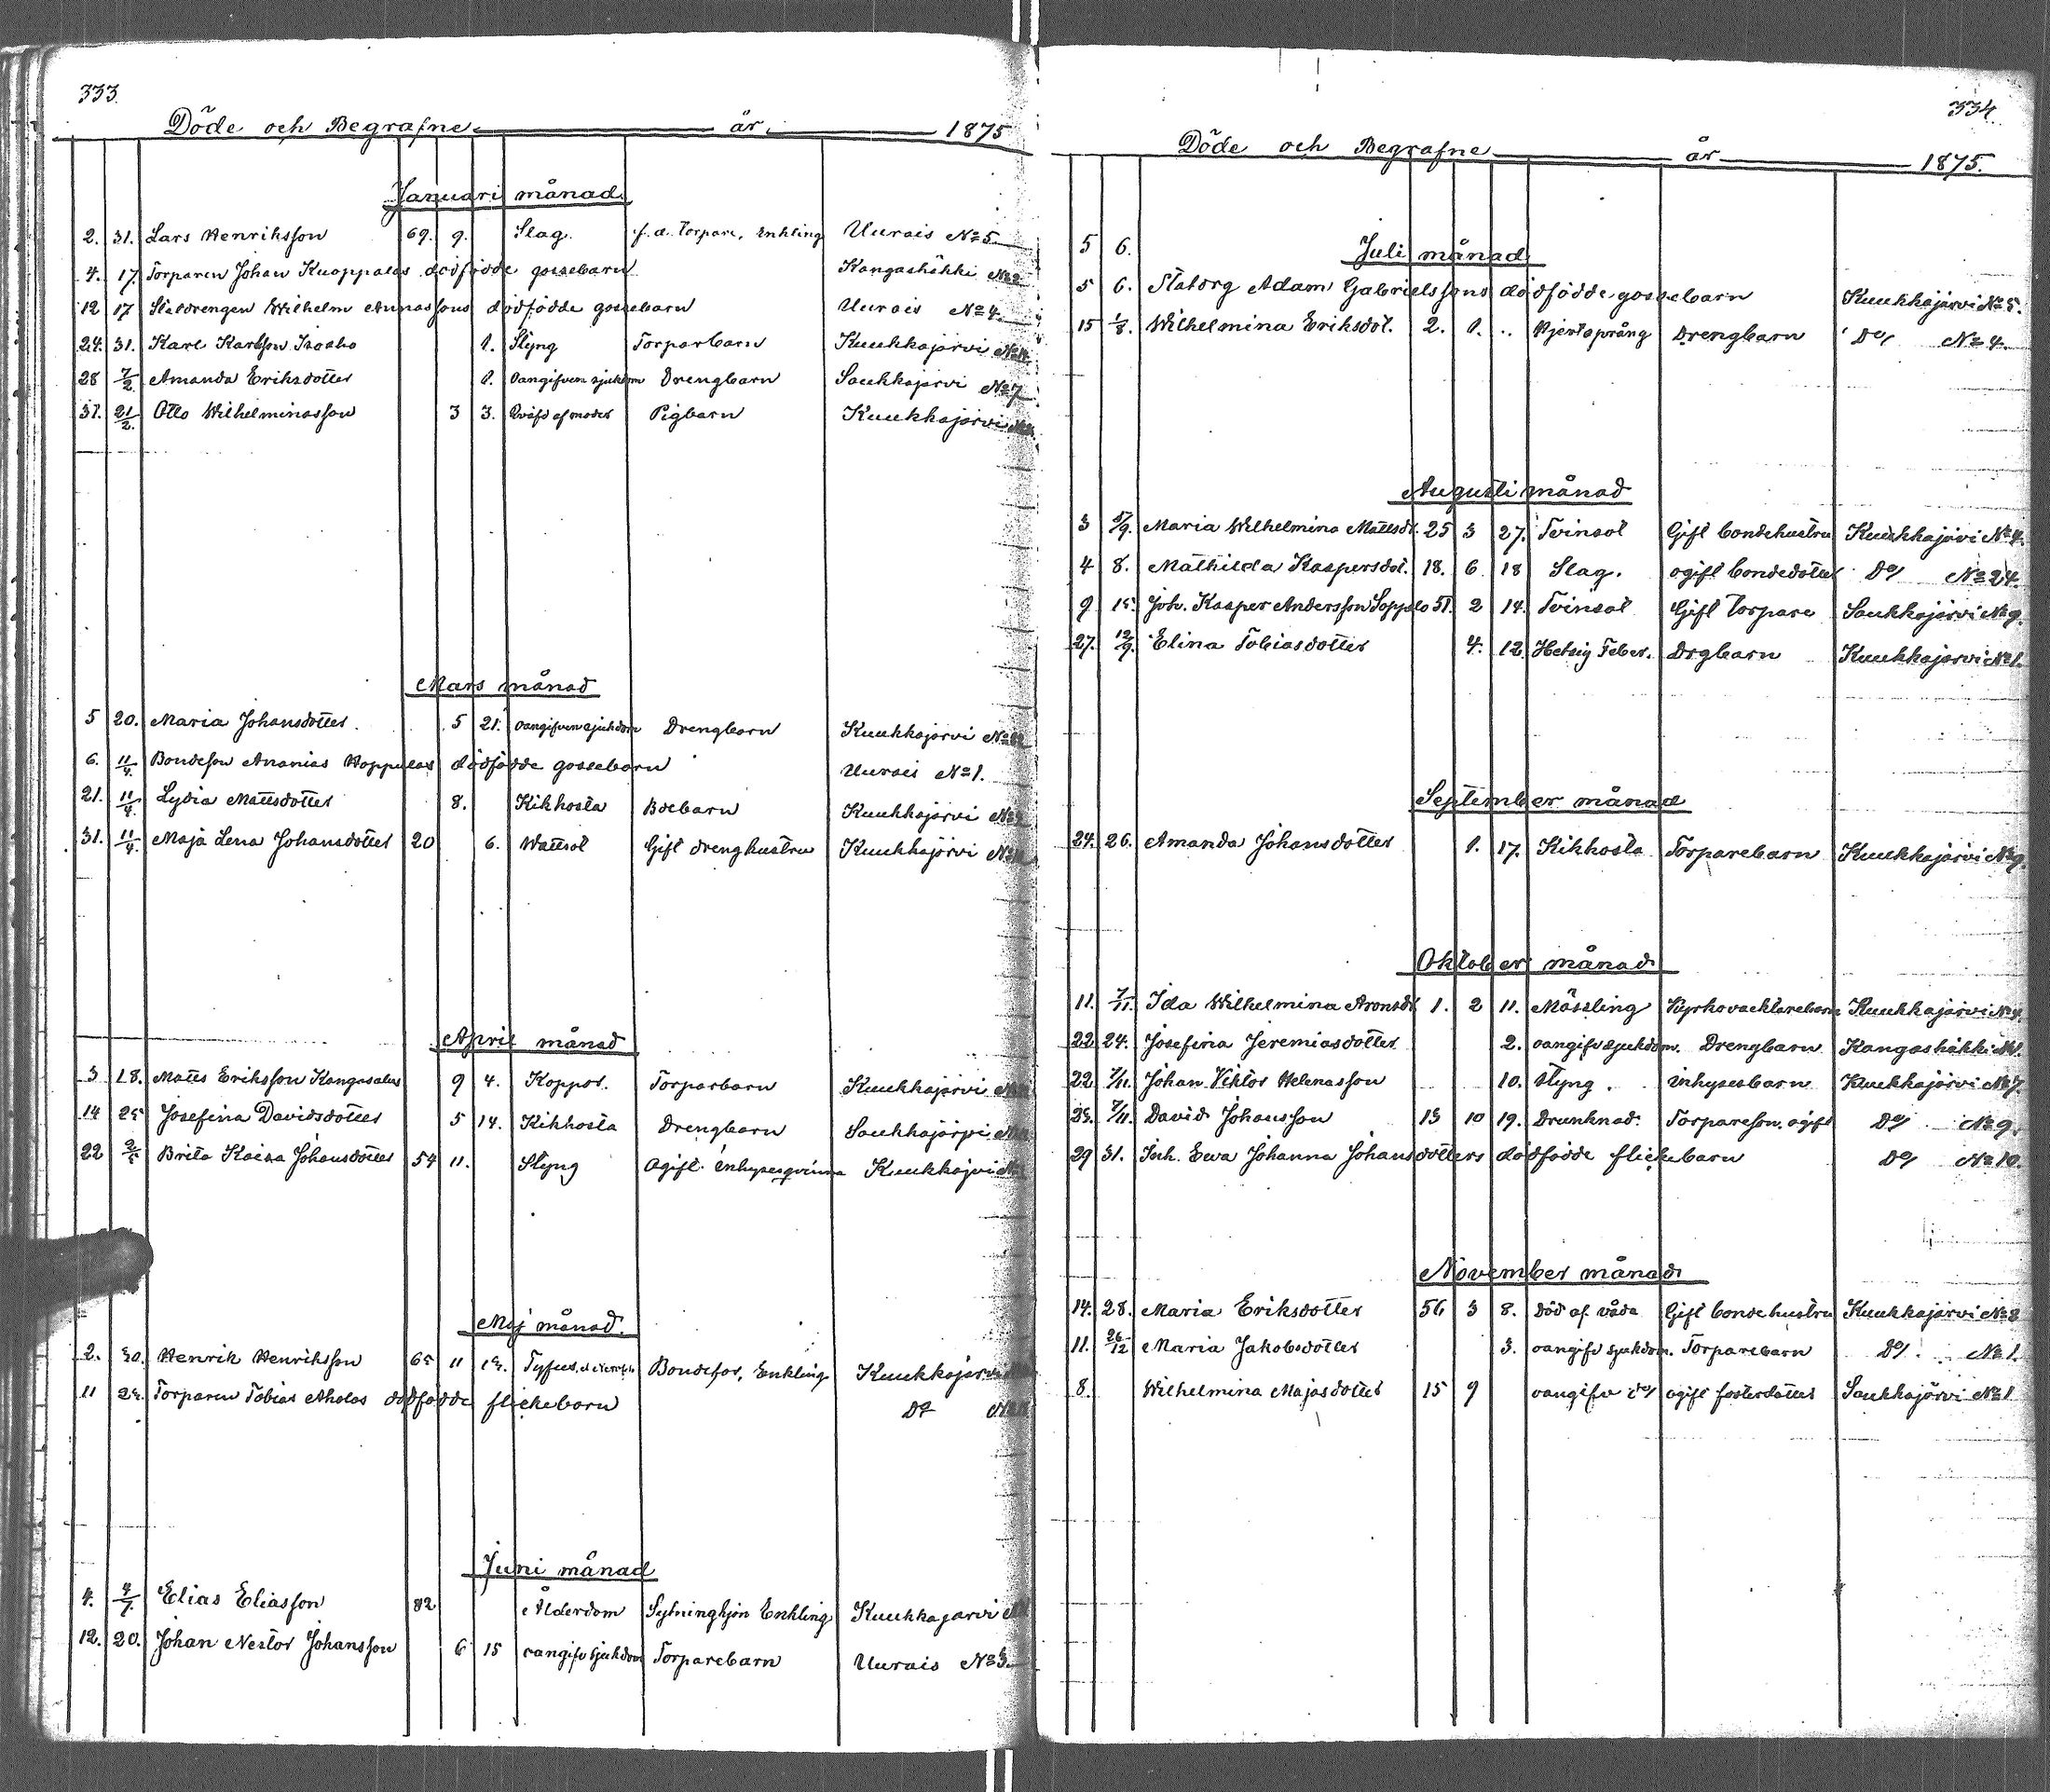 333.
Döde och Begrafne år 1875
Januari månad
2. 31. Lars Henriksson 69. 9. Slag. f.d. Torpare, Enkling Uurais No 5
4. 17. Torparen Johan Knoppalas dödfödde gossebarn Kangashäkki No 2
12 17 Städrengen Wilhelm Annassons dödfödde gossebarn Uurais No 4.
24. 31. Karl Karlsson Isoaho 1. Styng Torparbarn Kuukkajärvi
28 7/2 Amanda Eriksdotter 1. Oangifven sjukdom Drengbarn Saukkajärvi No 7
31. 21/2. Otto Wilhelminasson 3 3. Qväfd af moder Pigbarn Kuukkajärvi
Mars månad
5 20. Maria Johansdotter. 5 21. oangifven sjukdom Drengbarn Kuukkajärvi
6. 11/4. Bondeson Ananias Hoppulas dödfödde gossebarn Uurais No 1.
21. 11/4. Lydia Mattsdotter 8. Kikhosta Bdebarn Kuukkajärvi
31. 11/4. Maja Lena Johansdotter 20 6. Wattsot Gift drenghustru Kuukkajärvi
April månad
3 18. Matts Eriksson Kangasalus 9 4. Koppor. Torparbarn Kuukkajärvi
14 25 Josefina Davidsdotter 5 14. Kikhosta Drengbarn Saukkajärvi
22 2/5 Brita Kaisa Johansdotter 54 11. Styng Ogift. inhysesqvinna Kuukkajvi
Maj månad.
2. 30. Henrik Henriksson 65 11 Tyfus Bondefar, Enkling Kuukkajärvi
11 Torparen Tobias Aholas dödfödde flickebarn Do
Juni månad
4. 4/7. Elias Eliasson 82 Ålderdom Sytninghjon Enkling Kuukkajärvi
12. 20. Johan Nestor Johansson 6 15 oangifv sjukdom Torparebarn Uurais No 3.
334.
Döde och Begrafne år 1875.
5 6. Juli månad
5 6. Statdrg Adam Gabrielssons dödfödde gossebarn Kuukkajärvi No 5.
15 1/8. Wilhelmina Eriksdot. 2. 1. .. Hjertsprång Drengbarn Do No 4.
Augusti månad
3 5/9. Maria Wilhelmina Mattsdt. 25 3 27. Tvinsot Gift bondehustru Kuukkajärvi No 4.
4 8. Mathilda Kaspersdot. 18. 6 18 Slag. ogift bondedotter Do No 24.
9 15. Joh. Kasper Andersson Soppalo 51. 2 14. Tvinsot Gift Torpare Saukkajärvi No 9.
27. 12/9. Elina Tobiasdotter 4. 12. Hetsig Feber. Drgbarn Kuukkajärvi No 1.
September månad
24. 26. Amanda Johansdotter 1. 17. Kikhosta Torparebarn Kuukkajärvi No 9.
Oktober månad
11. 7/11. Ida Wilhelmina Aronsdt 1. 2 11. Mässling Kyrkovaktarebarn Kuukkajärvi No 4.
22 24. Josefina Jeremiasdotter 2. oangifv sjukdom. Drengbarn Kangashäkki No 1.
22 7/11. Johan Viktor Helenasson 10. Styng. inhysesbarn Kuukkajärvi No 7.
25. 7/11. David Johansson 13 10 19. Drunknad. Torpareson. ogift Do No 9.
29 31. Inh. Ewa Johanna Johansdotters dödfödde flickebarn Do No 10.
November månad
14. 28. Maria Eriksdotter 56 3 8. död af våda Gift bondehustru Kuukkajärvi No 8
11. 26/12 Maria Jakobsdotter 3. oangifv sjukdom. Torparebarn Do. No 1.
8. Wilhelmina Majasdotter 15 9 oangifv do ogift fosterdotter Saukkajärvi No 1